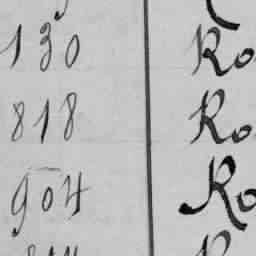 130 Ro
818 Ro
904 Ro